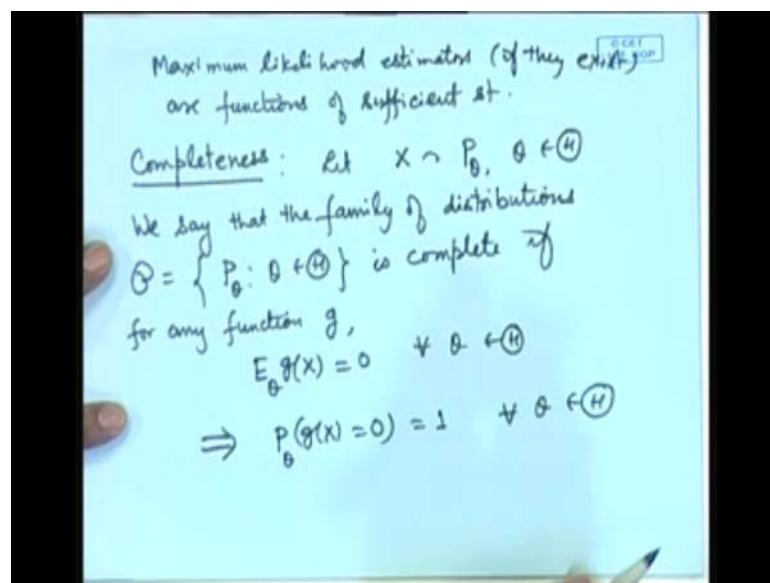 Maximum likelihood estimators (if they exist)
are functions of sufficient st.
Completeness: Let X ~ P_θ, θ ∈ Ⓗ
We say that the family of distributions
𝒫 = { P_θ : θ ∈ Ⓗ } is complete if
for any function g,
E_θ g(X) = 0 ∀ θ ∈ Ⓗ
⇒ P_θ(g(X) = 0) = 1 ∀ θ ∈ Ⓗ